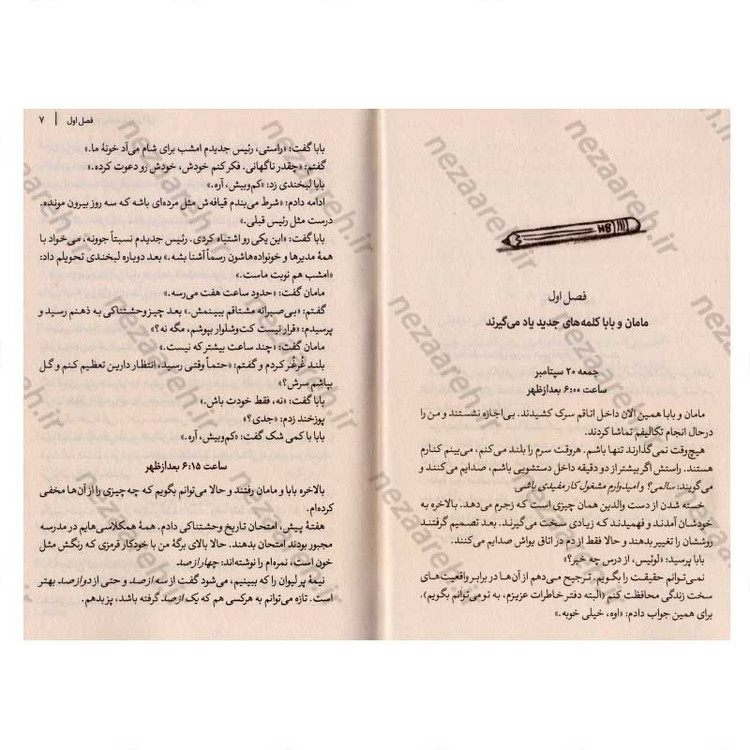 فصل اول
مامان و بابا کلمه‌های جدید یاد می‌گیرند
جمعه ۲۰ سپتامبر
ساعت ۶:۰۰ بعدازظهر
مامان و بابا همین الان داخل اتاقم سرک کشیدند. بی‌اجازه نشستند و من را
درحال انجام تکالیفم تماشا کردند.
هیچ‌وقت نمی‌گذارند تنها باشم. هروقت سرم را بلند می‌کنم، می‌بینم کنارم
هستند. راستش اگر بیشتر از دو دقیقه داخل دستشویی باشم، صدایم می‌کنند و
می‌گویند: سالمی؟ و امیدوارم مشغول کار مفیدی باشی.
خسته شدن از دست والدین همان چیزی است که زجرم می‌دهد. به‌خاطر
خودشان آمدند و فهمیدند که زیادی سخت می‌گیرند. بعد تصمیم گرفتند
روششان را تغییر بدهند و حالا فقط از دم در اتاق یواش صدایم می‌کنند.
بابا پرسید: «لوئیس، از درس چه خبر؟»
نمی‌توانم حقیقت را بگویم. ترجیح می‌دهم از آن‌ها در برابر واقعیت‌های
سخت زندگی محافظت کنم (البته دفتر خاطرات عزیزم، به تو می‌توانم بگویم).
برای همین جواب دادم: «اوه، خیلی خوبه.»
فصل اول | ۷
بابا گفت: «راستی، رئیس جدیدم امشب برای شام می‌آد خونهٔ ما.»
گفتم: «چقدر ناگهانی. فکر کنم خودش، خودش رو دعوت کرده.»
بابا لبخندی زد: «کم‌وبیش، آره.»
ادامه دادم: «شرط می‌بندم قیافه‌ش مثل مرده‌ای باشه که سه روز بیرون مونده.
درست مثل رئیس قبلی.»
بابا گفت: «این یکی رو اشتباه کردی. رئیس جدیدم نسبتاً جوونه، می‌خواد با
همهٔ مدیرها و خونواده‌هاشون رسماً آشنا بشه.» بعد دوباره لبخندی تحویلم داد:
«امشب هم نوبت ماست.»
مامان گفت: «حدود ساعت هفت می‌رسه.»
گفتم: «بی‌صبرانه مشتاقم ببینمش.» بعد چیز وحشتناکی به ذهنم رسید و
پرسیدم: «قرار نیست کت‌وشلوار بپوشم، مگه نه؟»
مامان گفت: «چند ساعت بیشتر که نیست.»
بلند غُرغُر کردم و گفتم: «حتماً وقتی رسید، انتظار دارین تعظیم کنم و گل
بپاشم سرش؟»
بابا گفت: «نه، فقط خودت باش.»
پوزخند زدم: «جدی؟»
بابا با کمی شک گفت: «کم‌وبیش، آره.»
ساعت ۶:۱۵ بعدازظهر
بالاخره بابا و مامان رفتند و حالا می‌توانم بگویم که چه چیزی را از آن‌ها مخفی
کرده‌ام.
هفتهٔ پیش، امتحان تاریخ وحشتناکی دادم. همهٔ همکلاسی‌هایم در مدرسه
مجبور بودند امتحان بدهند. حالا بالای برگهٔ من با خودکار قرمزی که رنگش مثل
خون است، نمره‌ام را نوشته‌اند: چهار از صد.
نیمهٔ پر لیوان را که ببینیم، می‌شود گفت از سه از صد و حتی از دو از صد بهتر
است. تازه می‌توانم به هرکسی هم که یک از صد گرفته باشد، پز بدهم.
nezaareh.ir